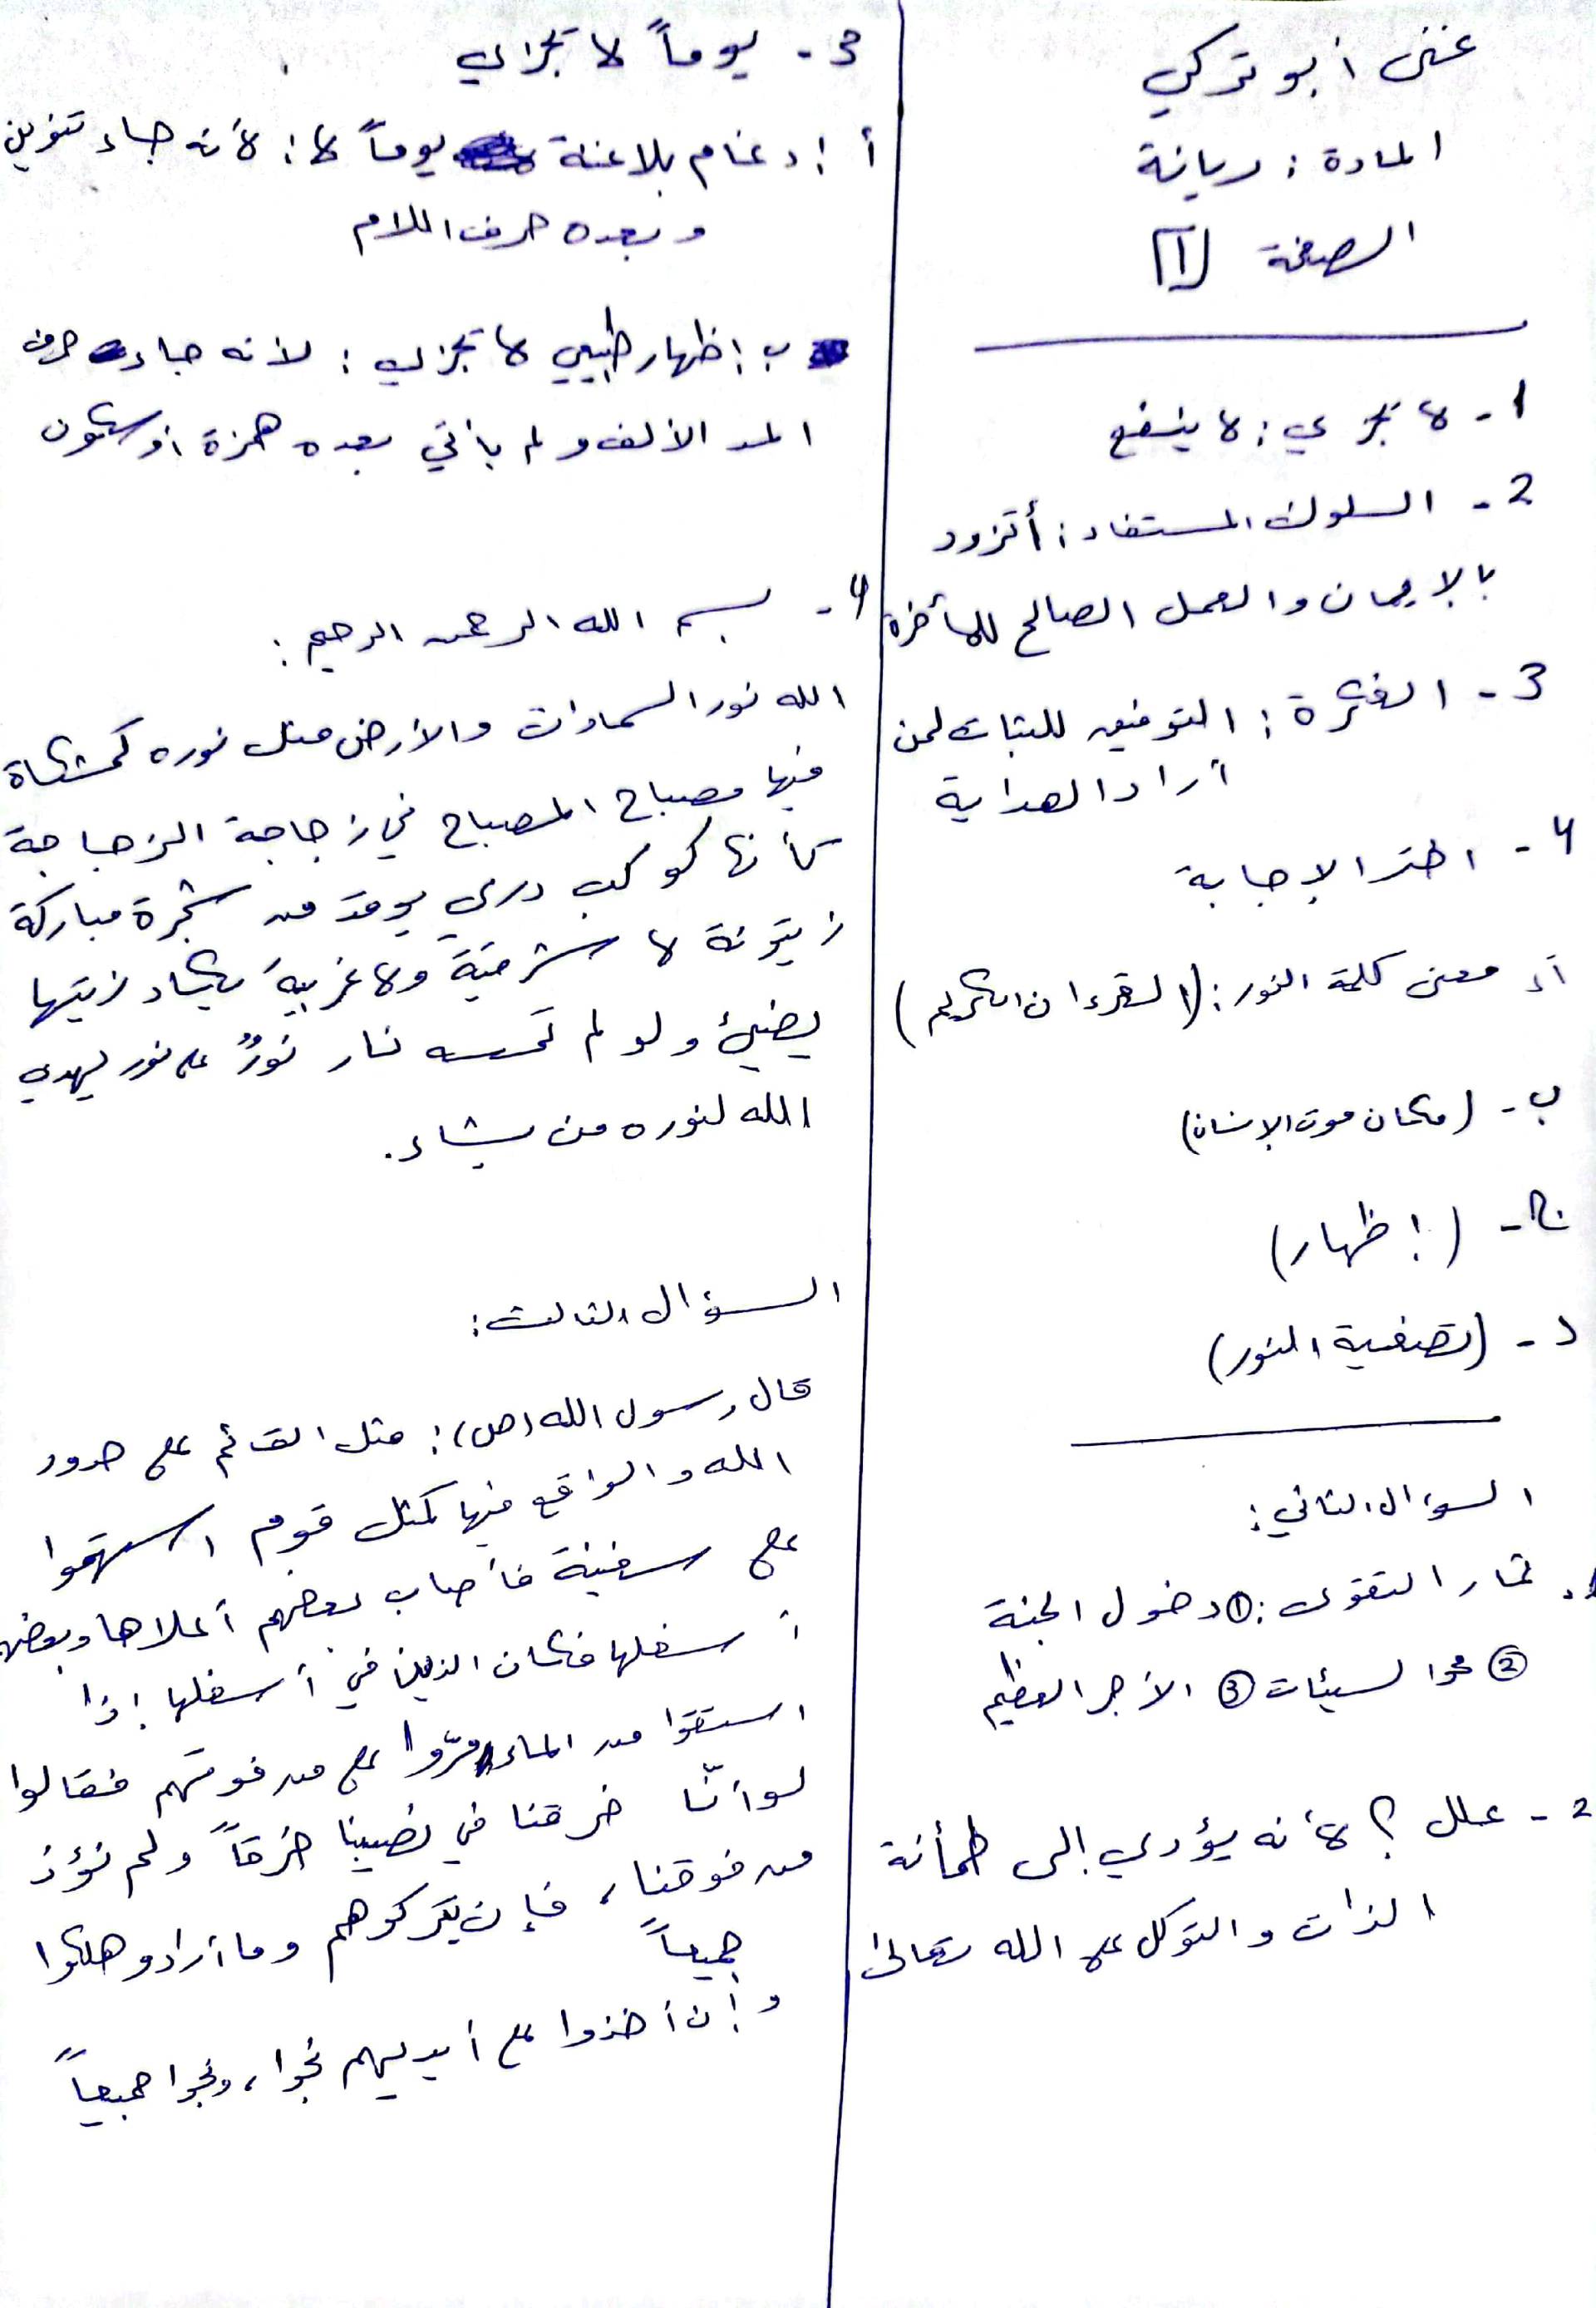 غنى أبو تركي
المادة : ديانة
الصفحة 1
1- لا تجزي : لا ينفع
2- السلوك المستفاد : أتزود
بالإيمان والعمل الصالح للآخرة
3- الفكرة : التوفيق للثبات لمن
أراد الهداية
4- اختر الإجابة
أ- معنى كلمة النور : (القرءان الكريم)
ب- (مكان موت الإنسان)
ج- (إظهار)
د- (تصفية النور)
السؤال الثاني :
1. ثمار التقوى : ① دخول الجنة
② محوا لسيئات ③ الأجر العظيم
2- علل ؟ لأنه يؤدي إلى طمأنة
الذات والتوكل على الله تعالى
3- يوماً لا تجزي
أ إدغام بلا غنة يوماً لا : لأنه جاء تنوين
وبعده حرف اللام
ب إظهار طبيعي لا تجزي : لأنه جاء حرف
المد الألف ولم يأتي بعده همزة أو سكون
4- بسم الله الرحمن الرحيم :
الله نور السماوات والأرض مثل نوره كمشكاة
فيها مصباح المصباح في زجاجة الزجاجة
كأنها كوكب دري يوقد من شجرة مباركة
زيتونة لا شرقية ولا غربية يكاد زيتها
يضيئ ولو لم تمسسه نار نورٌ على نور يهدي
الله لنوره من يشاء.
السؤال الثالث :
قال رسول الله (ص) : مثل القائم على حدود
الله والواقع فيها كمثل قوم استهموا
على سفينة فأصاب بعضهم أعلاها وبعضهم
أسفلها فكان الذين في أسفلها إذا
استقوا من الماء مرّوا على من فوقهم فقالوا
لو أنّا خرقنا في نصيبنا خرقاً ولم نؤذ
من فوقنا، فإن يتركوهم وما أرادو هلكوا
جميعاً
وإن أخذوا على أيديهم نجوا، ونجوا جميعاً